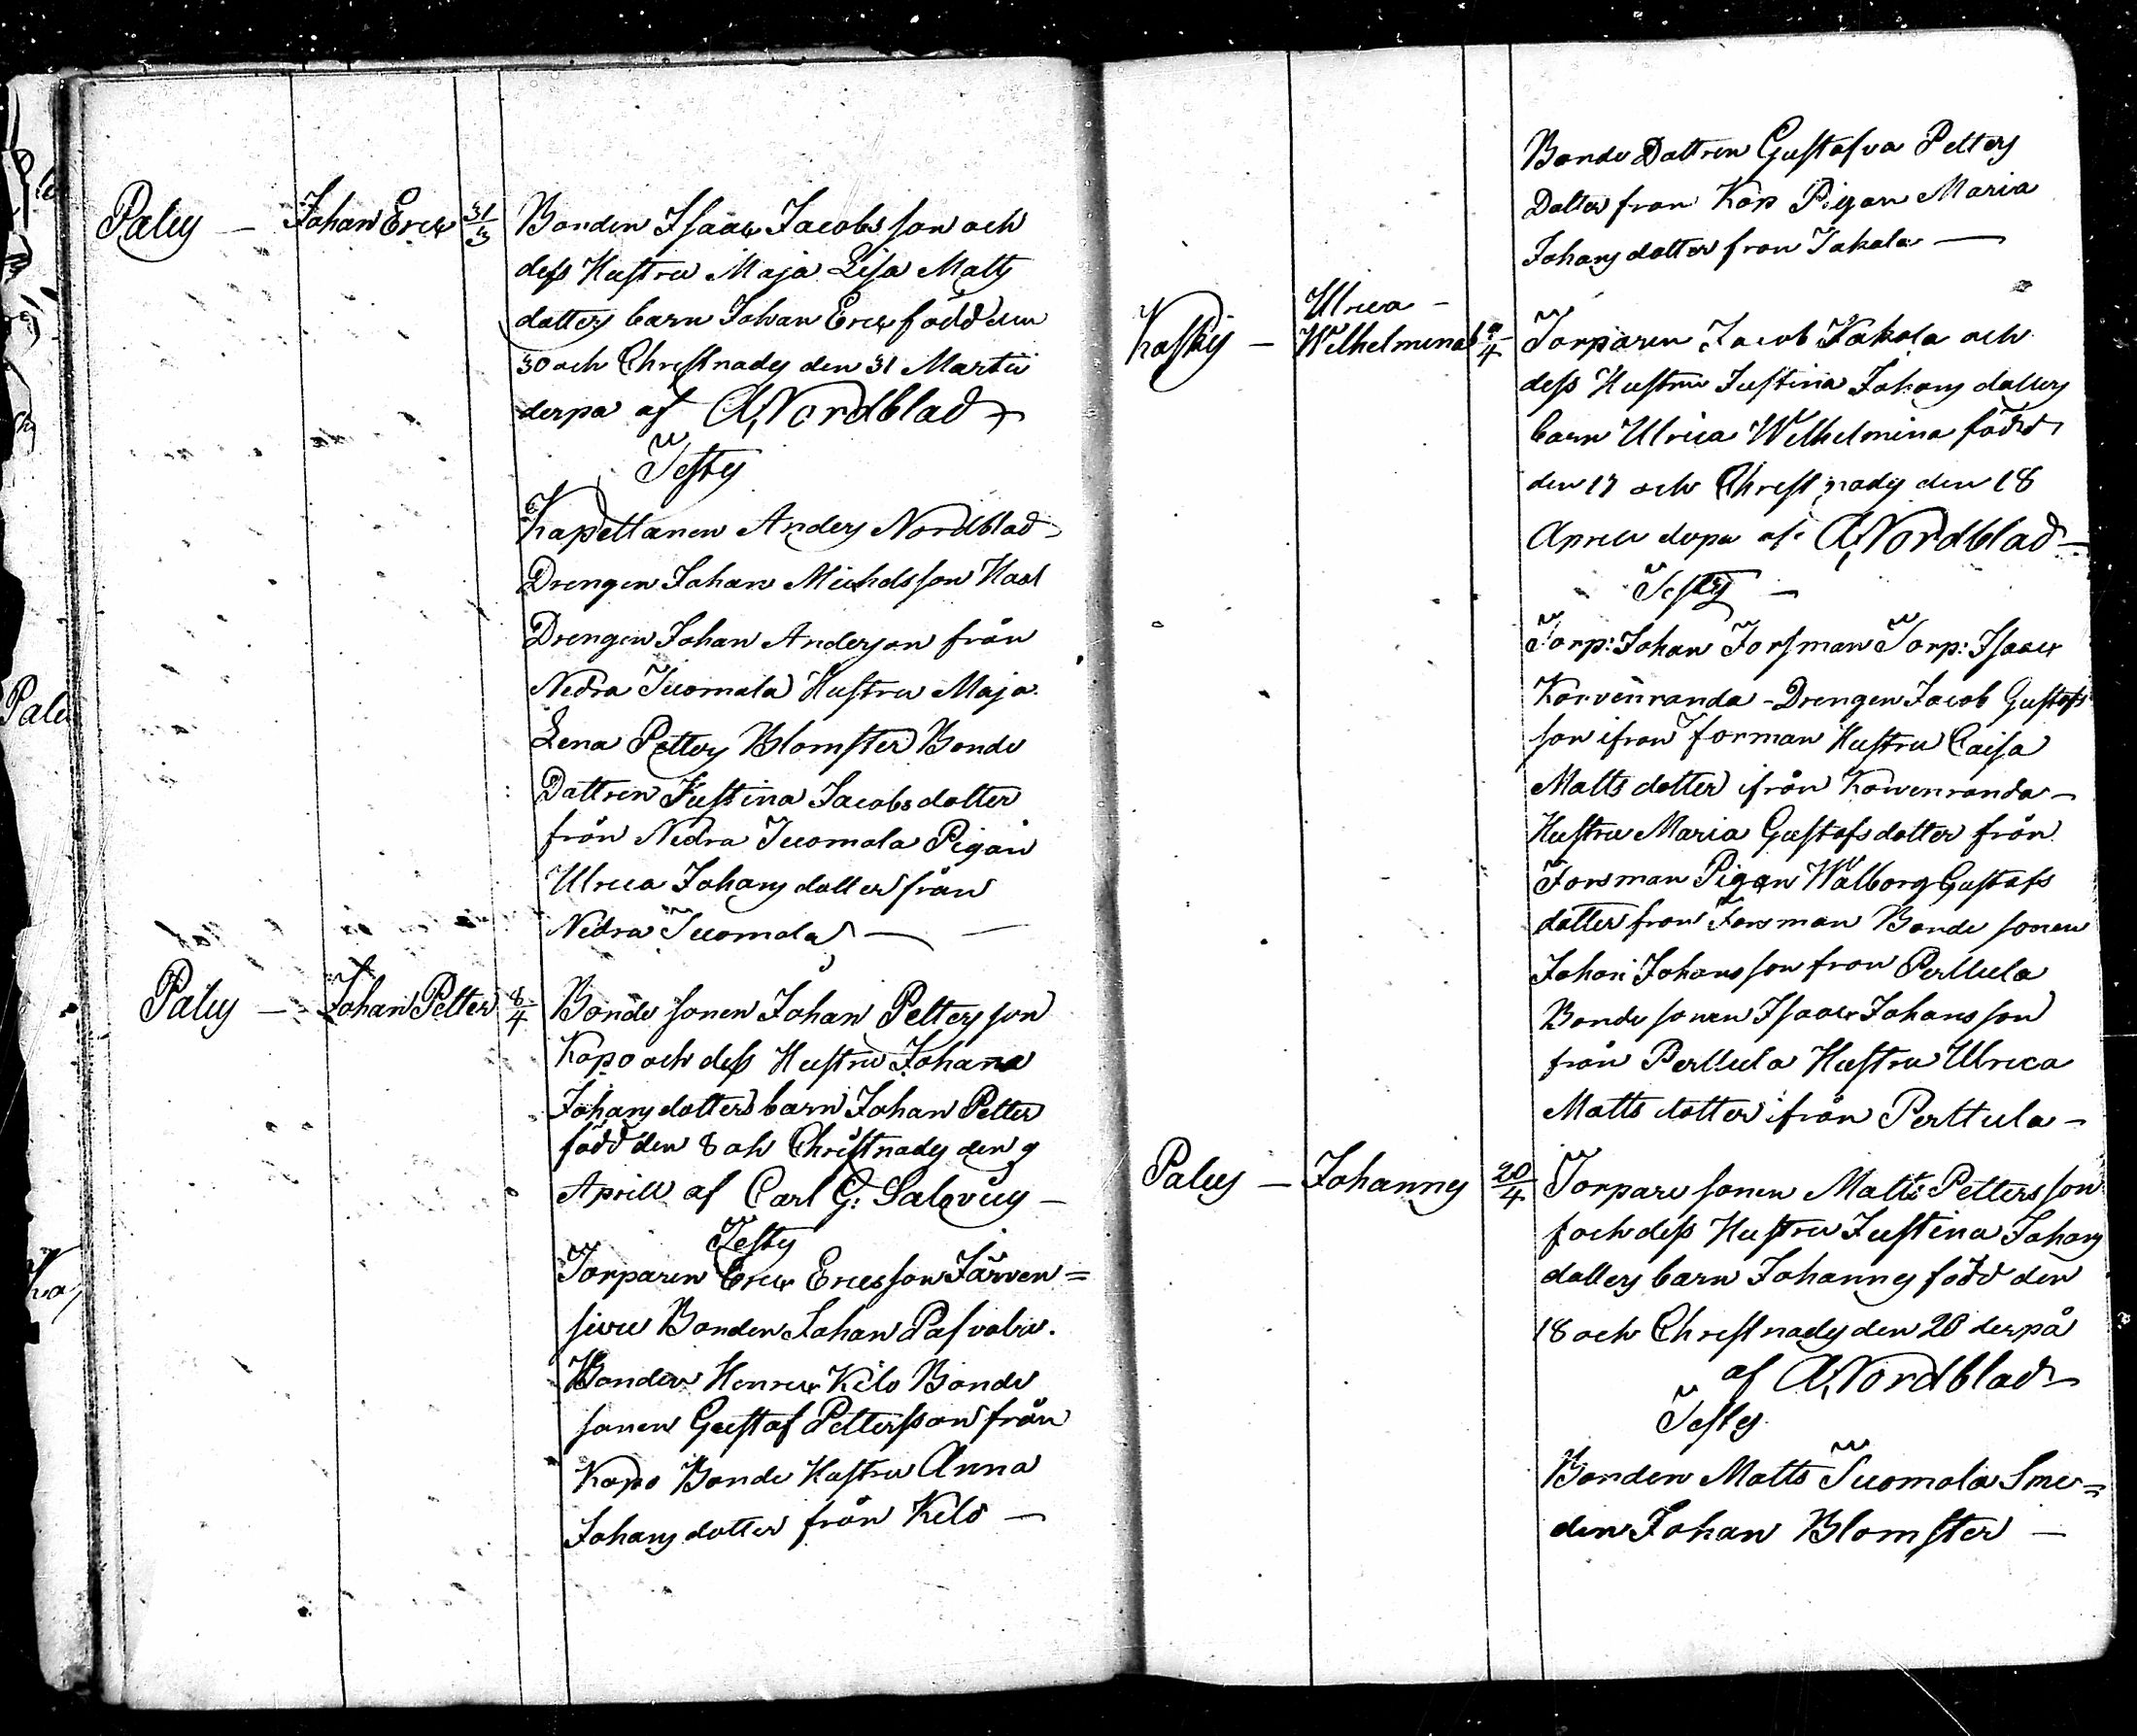 Palus — Johan Eric 31/3 Bonden Isaac Jacobs son och
dess Hustru Maja Lisa Matts
dotters barn Johan Eric född den
30 och Christnades den 31 Martii
derpa af A, Nordblad
Testes
Kapellanen Anders Nordblad
Drengen Johan Michelsson
Drengen Johan Anderson från
Nedra Tuomala Hustru Maja
Lena Petters Blomster Bonde
Dottren Justina Jacobs dotter
från Nedra Tuomola Pigan
Ulrica Johans dotter från
Nedra Tuomola —
Palus — Johan Petter 8/4 Bonde sonen Johan Petters son
Kopo och dess Hustru Johana
Johans dotters barn Johan Petter
född den 8 och Christnades den 9
Aprill af Carl G: Salovius —
Testes
Torparen Eric Ericsson Järven=
sivu Bonden Johan
Bonden Henric Kilo Bonde
sonen Gustaf Pettersson från
Kopo Bonde Hustru Anna
Johans dotter från Kilo —
Bonde Dottren Gustafva Petters
Dotter fron Kop Pigan Maria
Johans dotter fron Jakola —
Ulrica —
Koskis — Wilhelmina /4 Torparen Jacob Kakola och
dess Hustru Justina Johans dotters
barn Ulrica Wilhelmina född
den 17 och Christnades den 18
Aprill af A, Nordblad —
Testes —
Torp: Johan Forsman Torp: Isaac
Korvenranda - Drengen Jacob Gustafs
son ifron forman Hustru Caisa
Matts dotter ifrån Kowenranda —
Hustru Maria Gustafs dotter från
Forsman Pigan Walborg Gustafs
dotter fron Forsman Bonde sonen
Johan Johans son fron Perttula
Bonde sonen Isaac Johans son
från Perttula Hustru Ulrica
Matts dotter ifrån Perttula —
Palus — Johannes 20/4 Torpare sonen Matts Petters son
och dess Hustru Justina Johans
dotters barn Johannes född den
18 och Christnades den 20 derpå
af A, Nordblad
Testes
Bonden Matts Tuomola Sme=
den Johan Blomster —